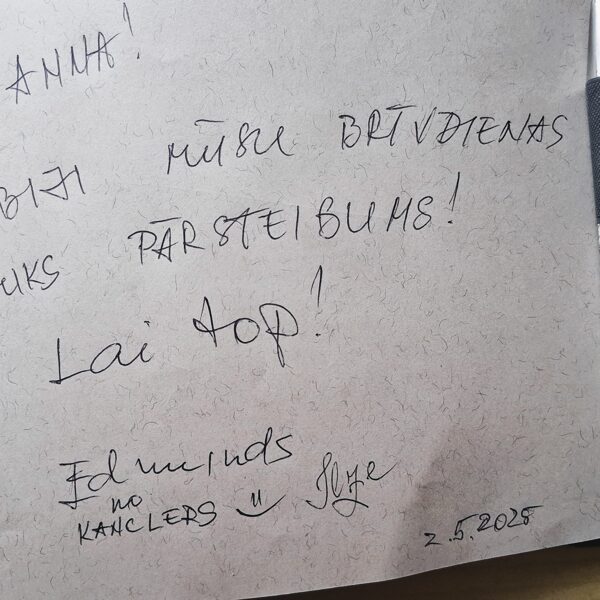 ANNA!
BIJI MŪSU BRĪVDIENAS
PĀRSTEIBUMS!
Lai top!
Edmunds
no
KANCLERS Ilze
2.5.2025